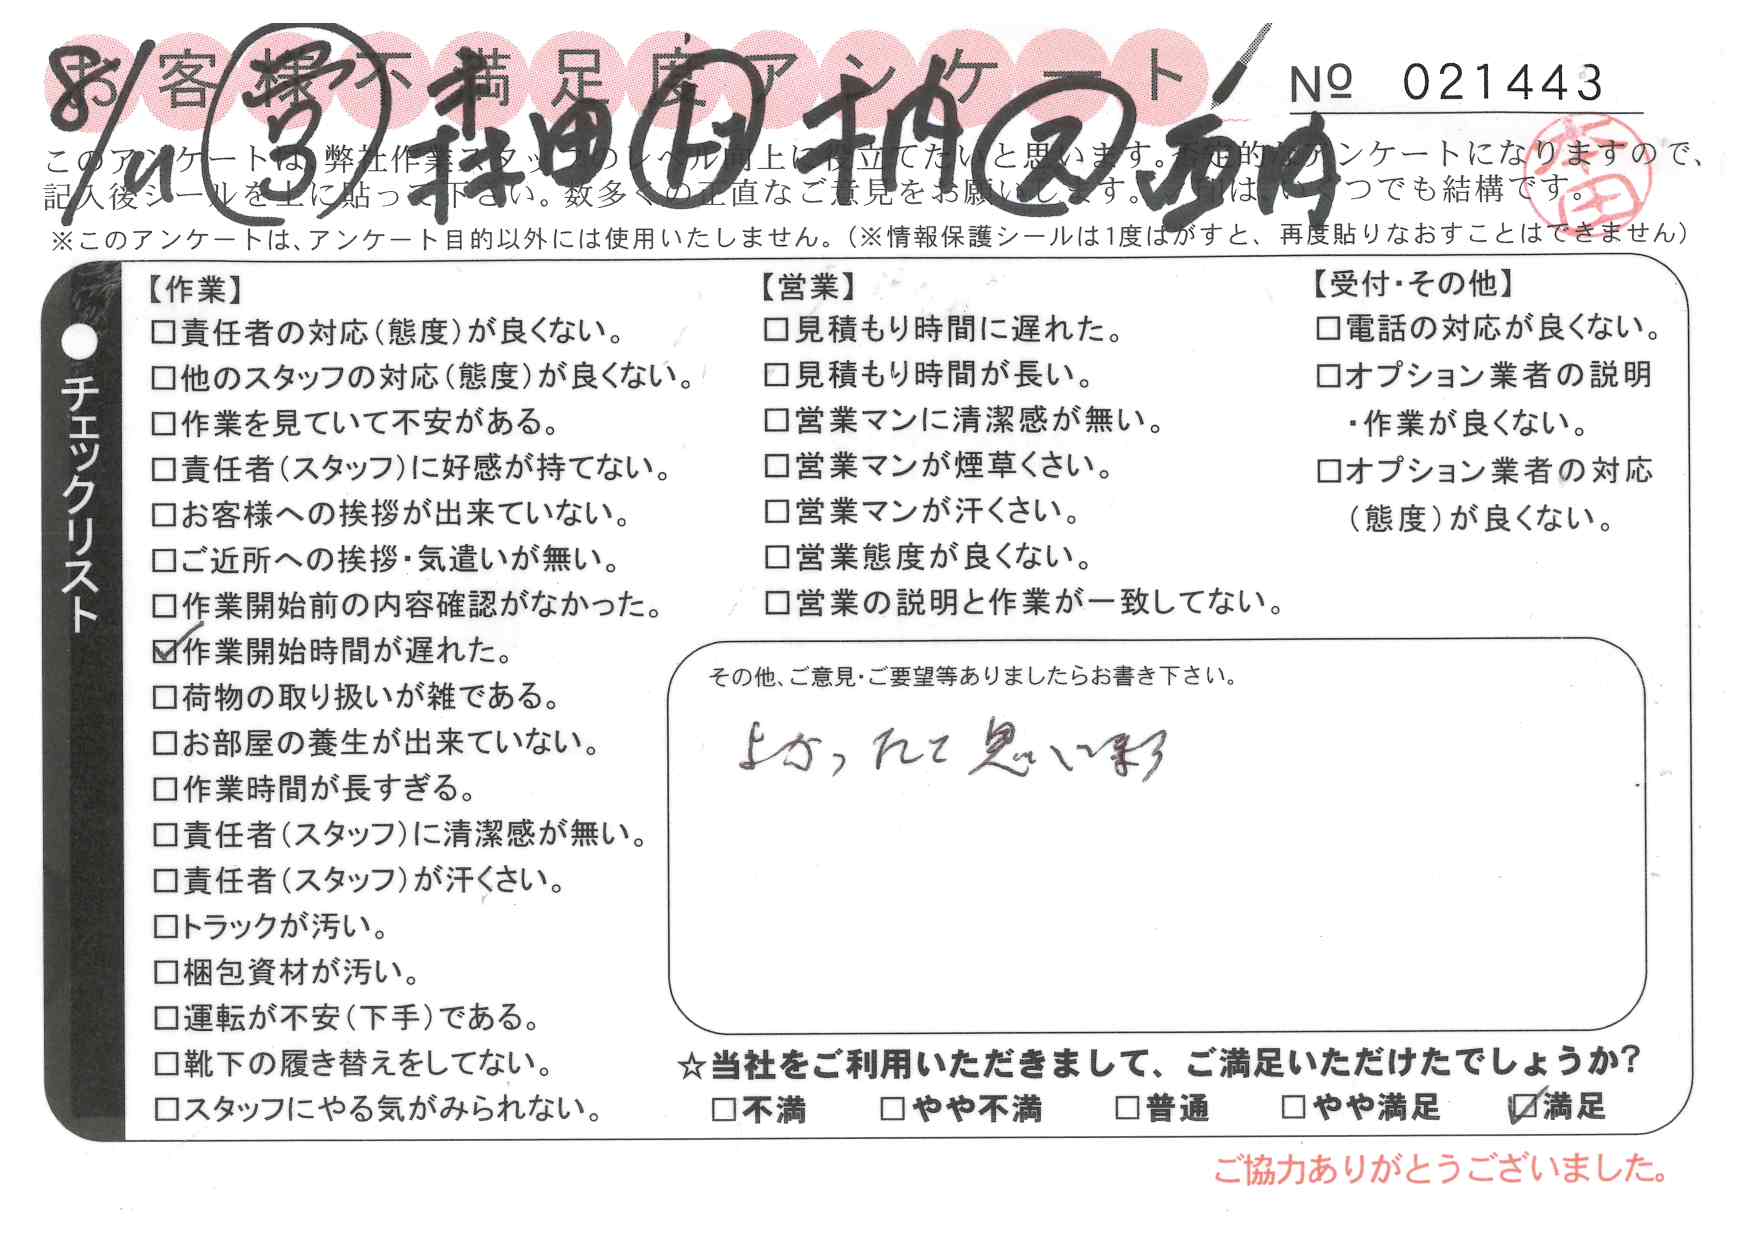 お客様不満足度アンケート
№ 021443
8/4 営 森田 ト 千内 ス 西内
このアンケートは、弊社作業スタッフのレベル向上に役立てたいと思います。否定的なアンケートになりますので、
記入後シールを上に貼って下さい。数多くの正直なご意見をお願いします。 は、いくつでも結構です。
※このアンケートは、アンケート目的以外には使用いたしません。(※情報保護シールは1度はがすと、再度貼りなおすことはできません)
●チェックリスト
【作業】
□責任者の対応(態度)が良くない。
□他のスタッフの対応(態度)が良くない。
□作業を見ていて不安がある。
□責任者(スタッフ)に好感が持てない。
□お客様への挨拶が出来ていない。
□ご近所への挨拶・気遣いが無い。
□作業開始前の内容確認がなかった。
☑作業開始時間が遅れた。
□荷物の取り扱いが雑である。
□お部屋の養生が出来ていない。
□作業時間が長すぎる。
□責任者(スタッフ)に清潔感が無い。
□責任者(スタッフ)が汗くさい。
□トラックが汚い。
□梱包資材が汚い。
□運転が不安(下手)である。
□靴下の履き替えをしてない。
□スタッフにやる気がみられない。
【営業】
□見積もり時間に遅れた。
□見積もり時間が長い。
□営業マンに清潔感が無い。
□営業マンが煙草くさい。
□営業マンが汗くさい。
□営業態度が良くない。
□営業の説明と作業が一致してない。
【受付・その他】
□電話の対応が良くない。
□オプション業者の説明
・作業が良くない。
□オプション業者の対応
(態度)が良くない。
その他、ご意見・ご要望等ありましたらお書き下さい。
よかったと思い
☆当社をご利用いただきまして、ご満足いただけたでしょうか?
□不満 □やや不満 □普通 □やや満足 ☑満足
ご協力ありがとうございました。